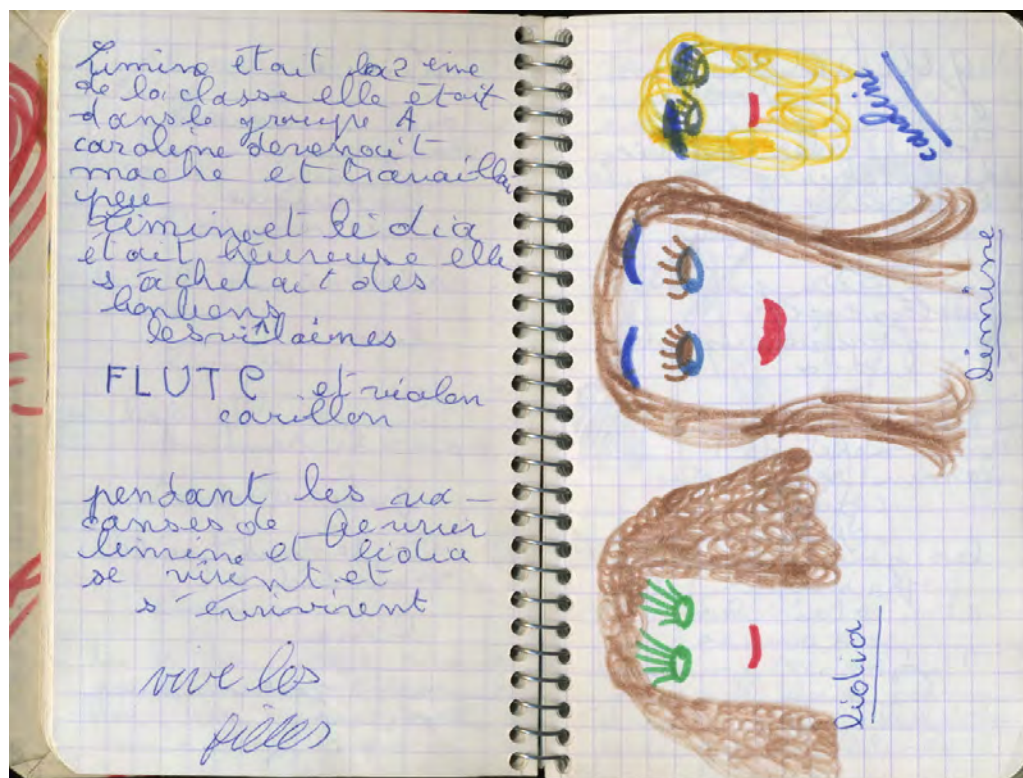 était la 2 ème
de la classe elle était
dans le groupe A
caroline devenait
mache et travailla
peu
et lidia
était heureuse elle
s'achetait des
bonbons
les vilaines
FLUTE et violon
carillon
pendant les va-
canses de fevrier
limine et lidia
se virent et
s'écrivirent
vive les
filles
caroline
limine
lidia